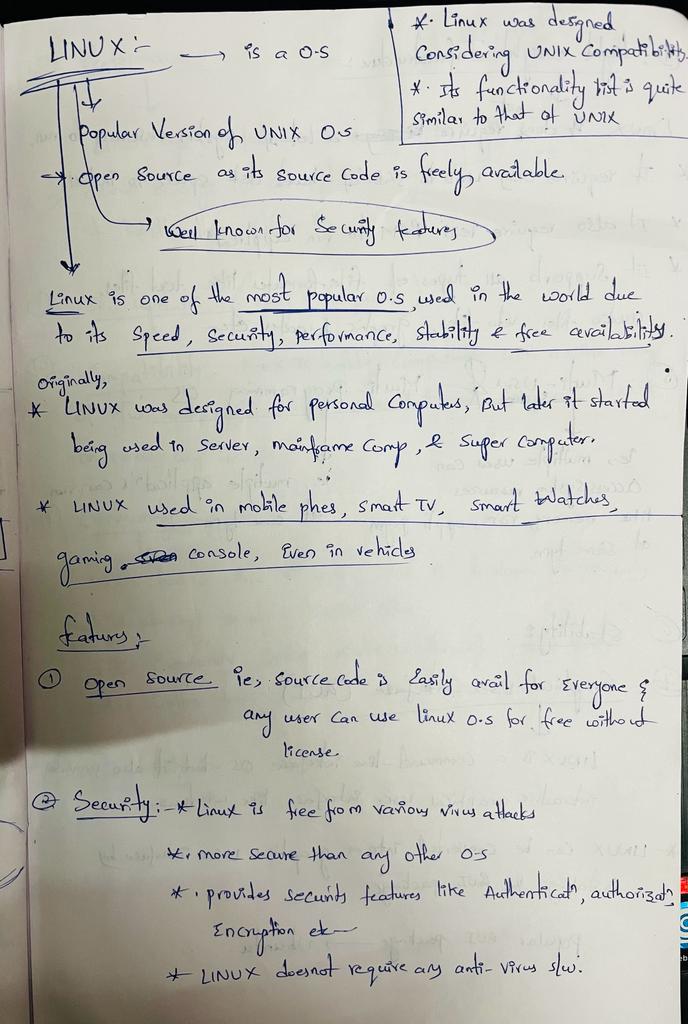 LINUX :- → is a O-S
*. Linux was designed
Considering UNIX Compatibility.
*. Its functionality list is quite
similar to that of UNIX
Popular Version of UNIX O.S
→ . Open Source as its source Code is freely available
Well known for Security features
Linux is one of the most popular O.S, used in the world due
to its Speed, Security, performance, stability & free availability.
Originally,
* LINUX was designed for personal Computers, But later it started
being used in Server, mainframe Comp, & Super Computer.
* LINUX used in mobile phes, smart TV, smart Watches,
gaming, console, Even in vehicles
featurs :-
① Open Source ie, Source code is Easily avail for Everyone &
any user can use linux O.S for free without
license
② Security :- * Linux is free from various virus attacks
*. more secure than any other O-S
* . provides security features like Authenticatn, authorizatn,
Encryption etc
* LINUX doesnot require any anti-virus s/w.